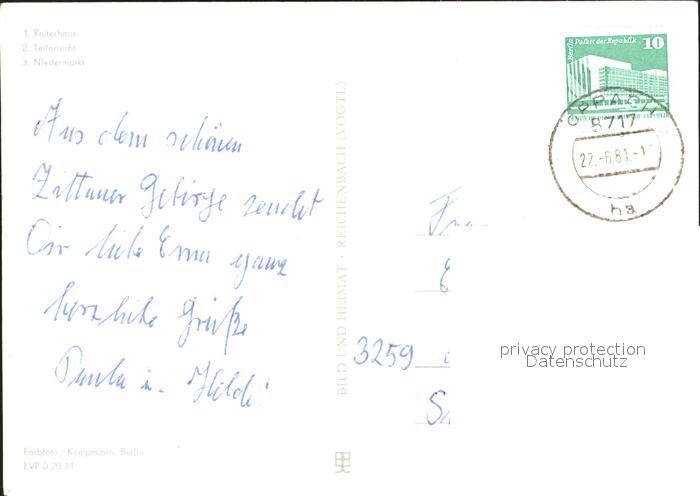 1. Reiterhaus
2. Teilansicht
3. Niedermarkt
Berlin Palast der Republik 10
OPPACH
8717
22.-6.81.-1
ha
Aus dem schönen
Zittauer Gebirge sendet
Dir liebe Erna ganz
herzliche Grüße
Paula u. Hilde!
BILD UND HEIMAT · REICHENBACH (VOGTL)
3259
privacy protection
Datenschutz
Farbfoto: Kampmann, Berlin
EVP 0.20 M